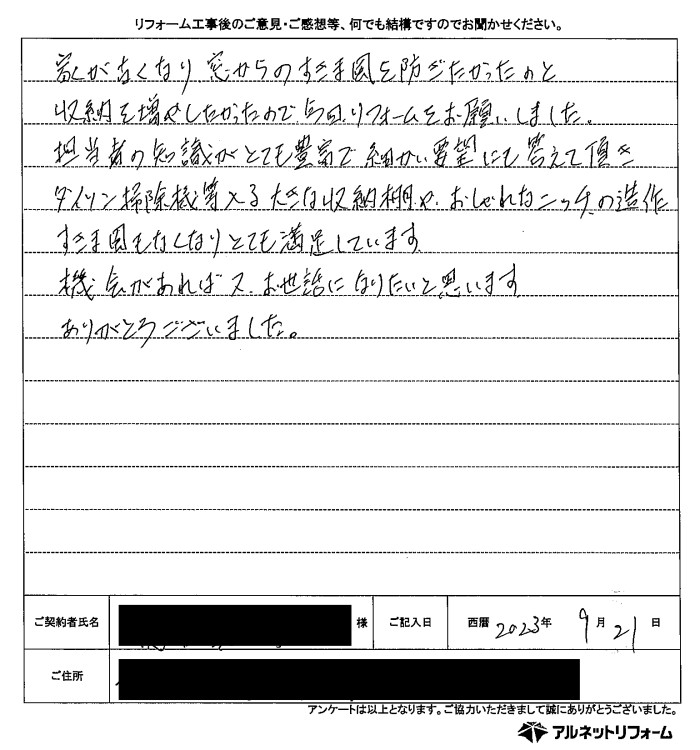 リフォーム工事後のご意見・ご感想等、何でも結構ですのでお聞かせください。
家が古くなり 窓からのすきま風を防ぎたかったのと
収納を増やしたかったので、今回、リフォームをお願いしました。
担当者の知識がとても豊富で細かい要望にも答えて頂き
ダイソン掃除機等入る大きな収納棚や、おしゃれなニッチの造作
すきま風もなくなりとても満足しています
機会があれば又、お世話になりたいと思います
ありがとうございました。
ご契約者氏名 様 ご記入日 西暦 2023年 9月 21日
ご住所
アンケートは以上となります。ご協力いただきまして誠にありがとうございました。
アルネットリフォーム